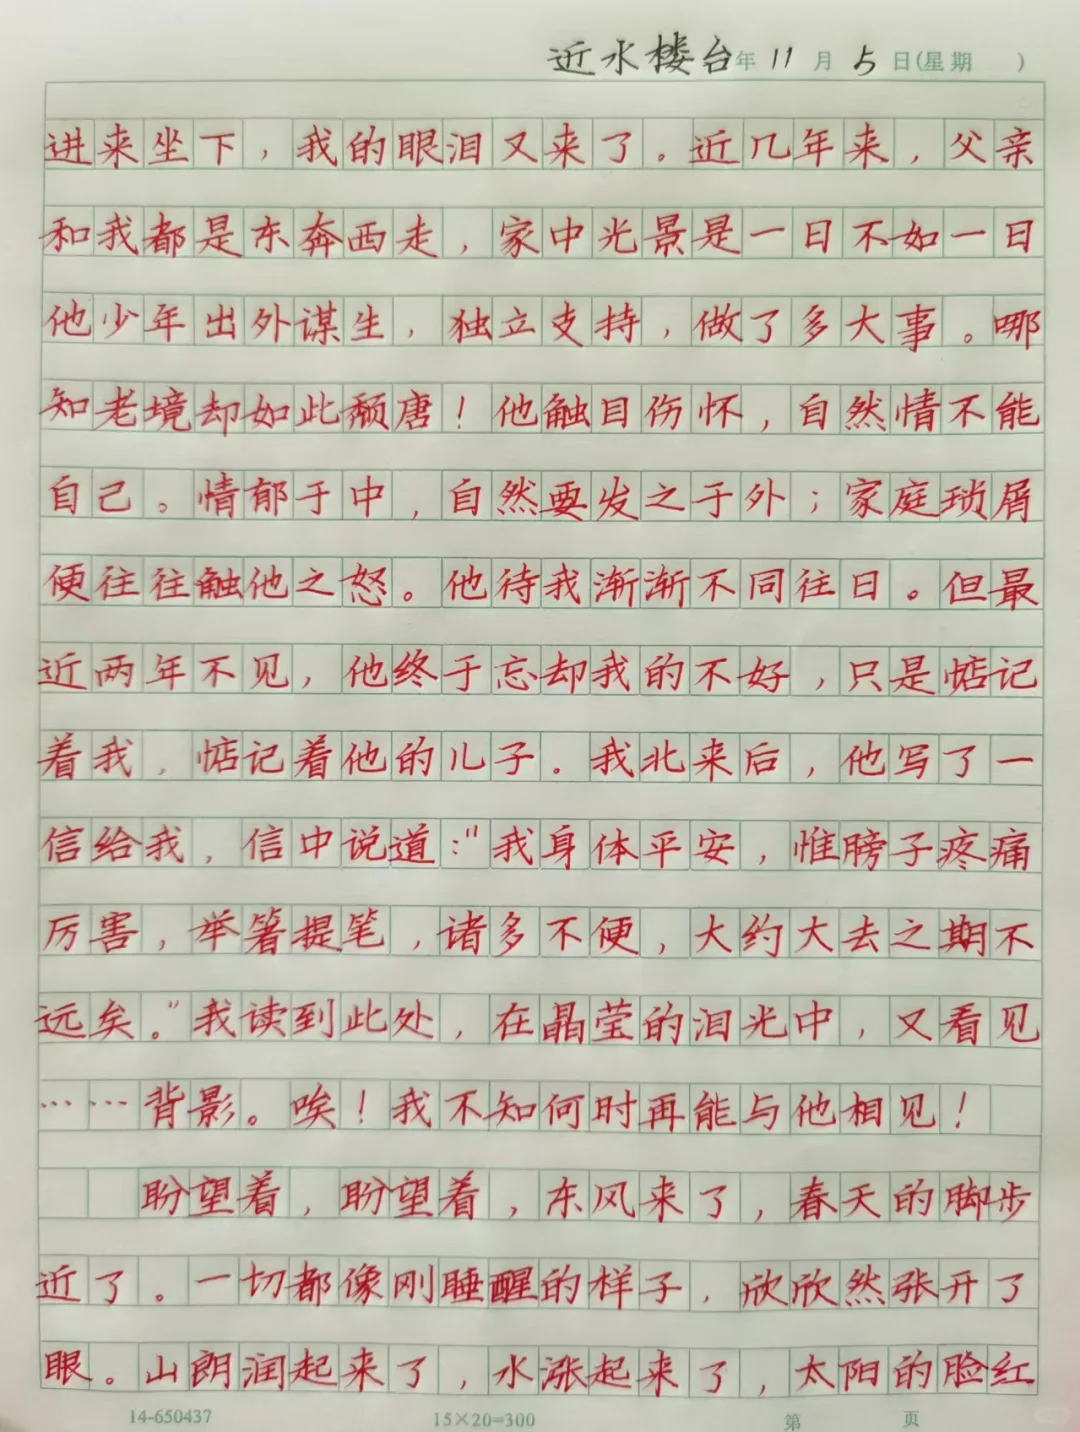 近水楼台年11月5日(星期 )
进来坐下，我的眼泪又来了。近几年来，父亲
和我都是东奔西走，家中光景是一日不如一日
他少年出外谋生，独立支持，做了多大事。哪
知老境却如此颓唐！他触目伤怀，自然情不能
自己。情郁于中，自然要发之于外；家庭琐屑
便往往触他之怒。他待我渐渐不同往日。但最
近两年不见，他终于忘却我的不好，只是惦记
着我，惦记着他的儿子。我北来后，他写了一
信给我，信中说道:"我身体平安，惟膀子疼痛
厉害，举箸提笔，诸多不便，大约大去之期不
远矣。"我读到此处，在晶莹的泪光中，又看见
……背影。唉！我不知何时再能与他相见！
盼望着，盼望着，东风来了，春天的脚步
近了。一切都像刚睡醒的样子，欣欣然张开了
眼。山朗润起来了，水涨起来了，太阳的脸红
14-650437 15×20=300 第 页